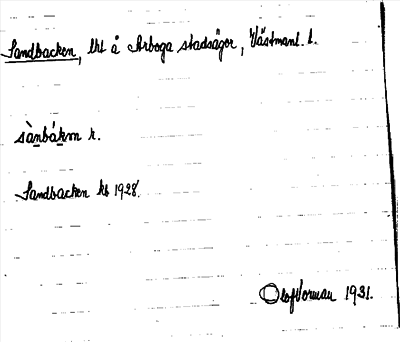 Sandbacken, lht å Arboga stadsägor, Västmanl. l.
sànbákən r.
Sandbacken kb 1928.
Olof Norman 1931.